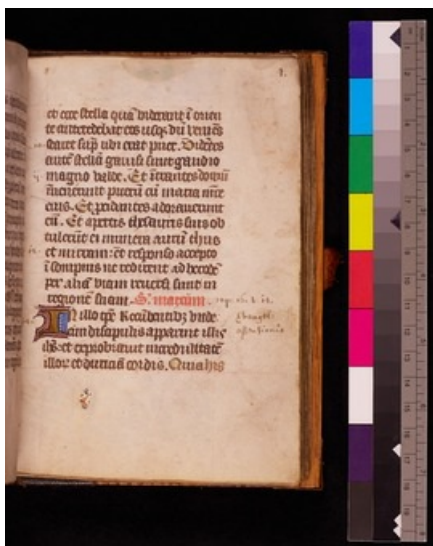 et ecce stella quā viderāt ī orien
te antecedebat eos usq; dū veniēs
staret sup̄ ubi erat puer. Videntes
autē stellā gavisi sunt gaudio
magno valde. Et ītrantes domū
īvenerunt puerū cū maria mr̄e
eius. Et procidentes adoraverunt
eū. Et apertis thesauris suis ob
tulerūt ei munera aurū thus
et mirram: et responso accepto
ī sompnis ne redirent ad herodē
per aliā viam reversi sunt in
regionē suam. S. marcum.
In illo tp̄e Recūbentibꝫ unde
cim discipulis apparuit illis
ih̄s et exprobravit incredulitatē
illoꝝ et duriciā cordis. Quia his